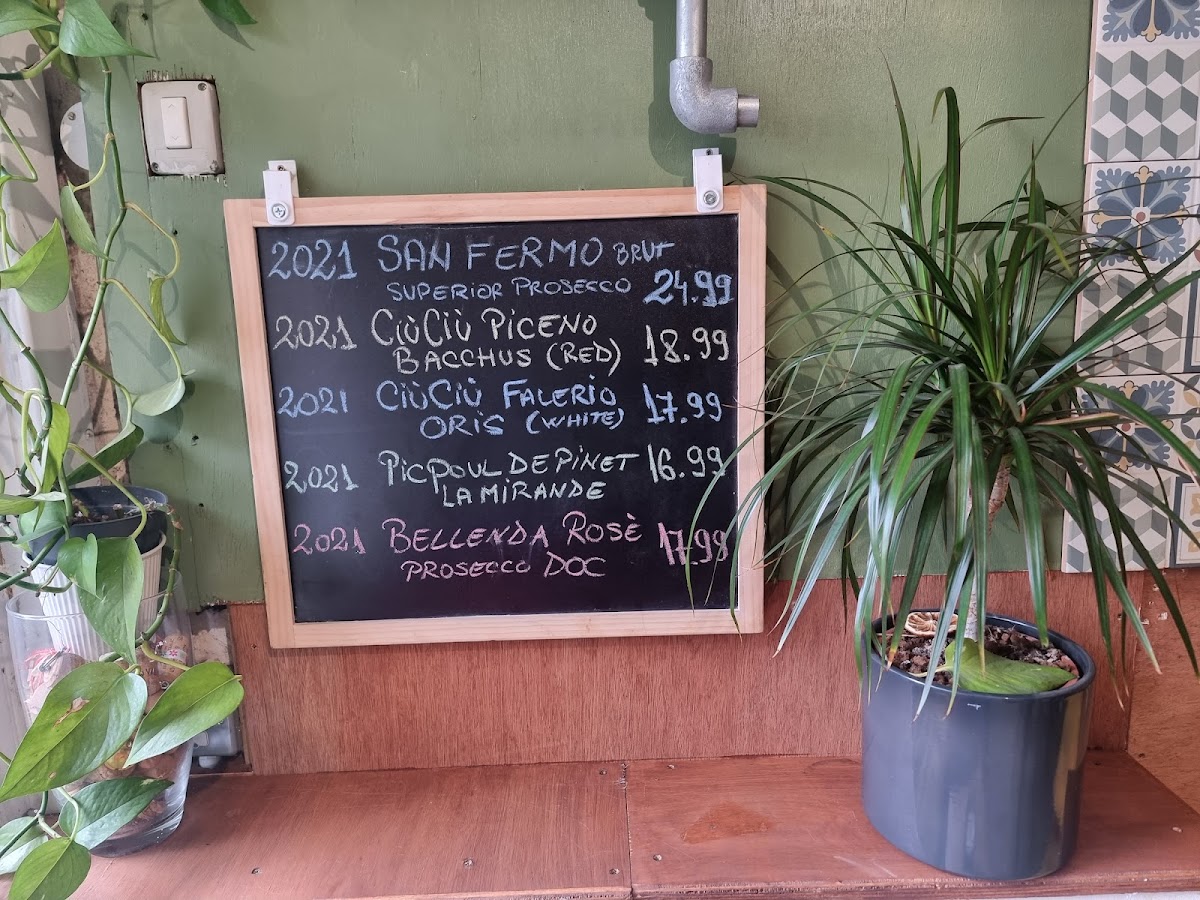 2021 SAN FERMO BRUT
SUPERIOR PROSECCO 24.99
2021 CIÙCIÙ PICENO
BACCHUS (RED) 18.99
2021 CIÙCIÙ FALERIO
ORIS (WHITE) 17.99
2021 PICPOUL DE PINET 16.99
LA MIRANDE
2021 BELLENDA ROSÈ 17.99
PROSECCO DOC